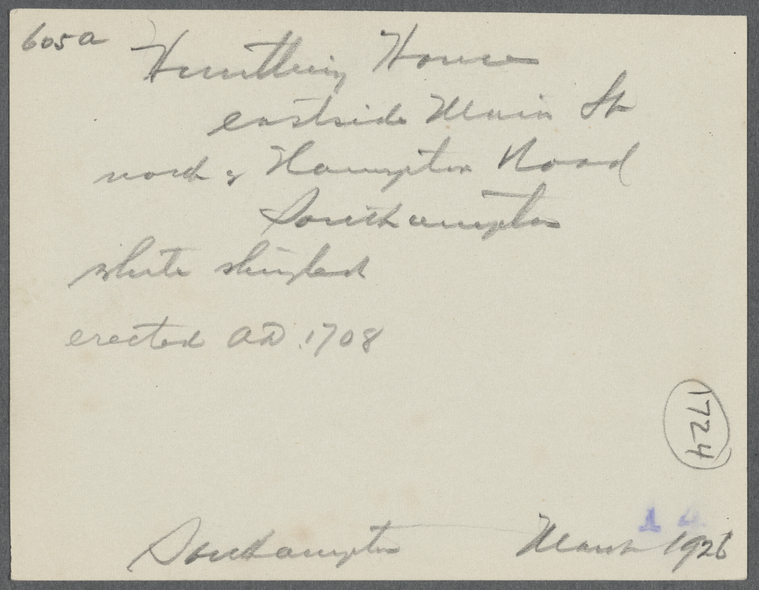 605a
Huntting House
eastside Main St
north of Hampton Road
Southampton
white shingled
erected AD. 1708
1724
Southampton March 1926